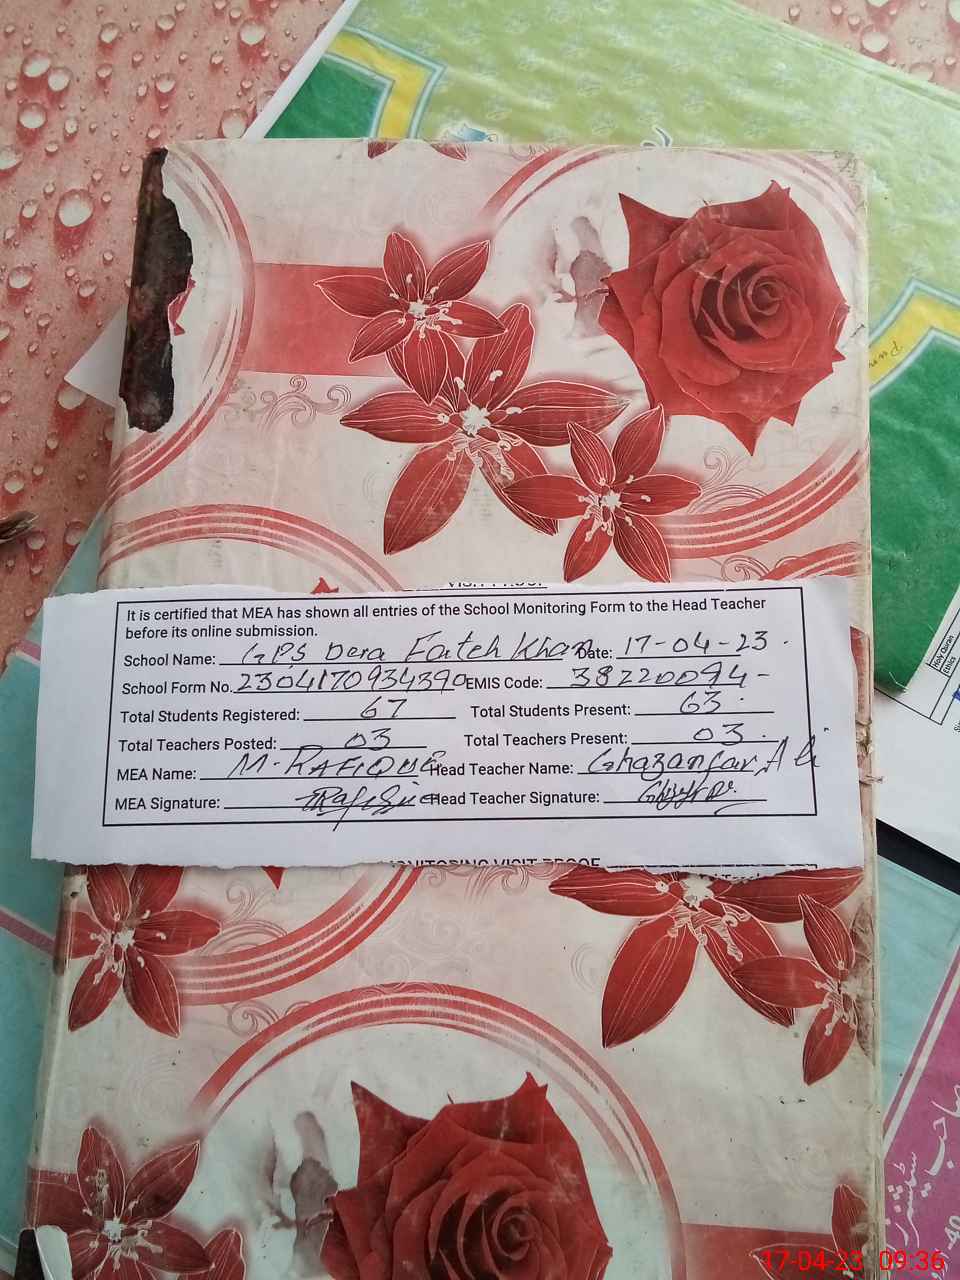 It is certified that MEA has shown all entries of the School Monitoring Form to the Head Teacher
before its online submission.
School Name: GPS Dera Fateh Khan Date: 17-04-23
School Form No. 2304170934390 EMIS Code: 38220094
Total Students Registered: 67 Total Students Present: 63
Total Teachers Posted: 03 Total Teachers Present: 03
MEA Name: M. RAFIQUE Head Teacher Name: Ghazanfar Ali
MEA Signature: Head Teacher Signature:
MONITORING VISIT PROOF
Holy Quran
Ethics
صاحب
17-04-23 09:36